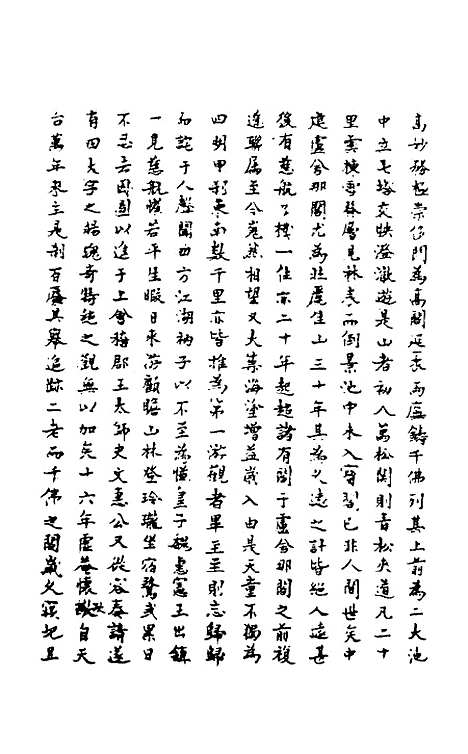 高妙勝極崇其門為高閣延袤兩廡鑄千佛列其上前為二大池
中立七塔交映澄澈遊是山者初入萬松関則青松夾道凡二十
里雲棟雪脊層見林表而倒景池中未入窗闥已非人間世矣中
建盧舍那閣尤為壯麗住山三十年其為久遠之計皆絕人遠甚
後有慈航了樸一住亦二十年起超諸有閣于盧舍那閣之前複
道聯屬至今巍然相望又大築海塗增益歲入由是天童不獨為
四明甲刹東南數千里亦皆推為第一游觀者畢至至則忘歸歸
而詫于人聲聞四方江湖衲子以不至為愧皇子魏惠憲王出鎮
一見慈航懽若平生暇日來游顧瞻山林登玲瓏坐宿鷺或累日
不忍去因圖以進于上會梅郡王太師史文惠公又從容奏請遂
有四大字之揭瑰奇特絕之觀無以加矣十六年虛菴懷敞自天
台萬年來主是刹百廢具舉追跡二老而千佛之閣歲久寖圮且